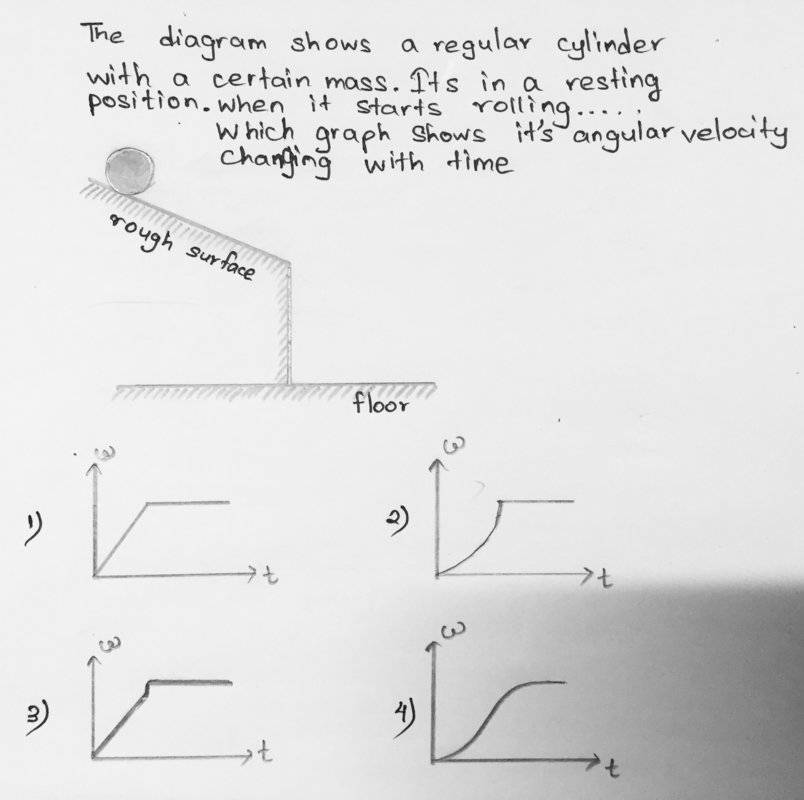 The diagram shows a regular cylinder
with a certain mass. Its in a resting
position. when it starts rolling.....
Which graph shows it's angular velocity
changing with time
rough surface
floor
1) ω t
2) ω t
3) ω t
4) ω t